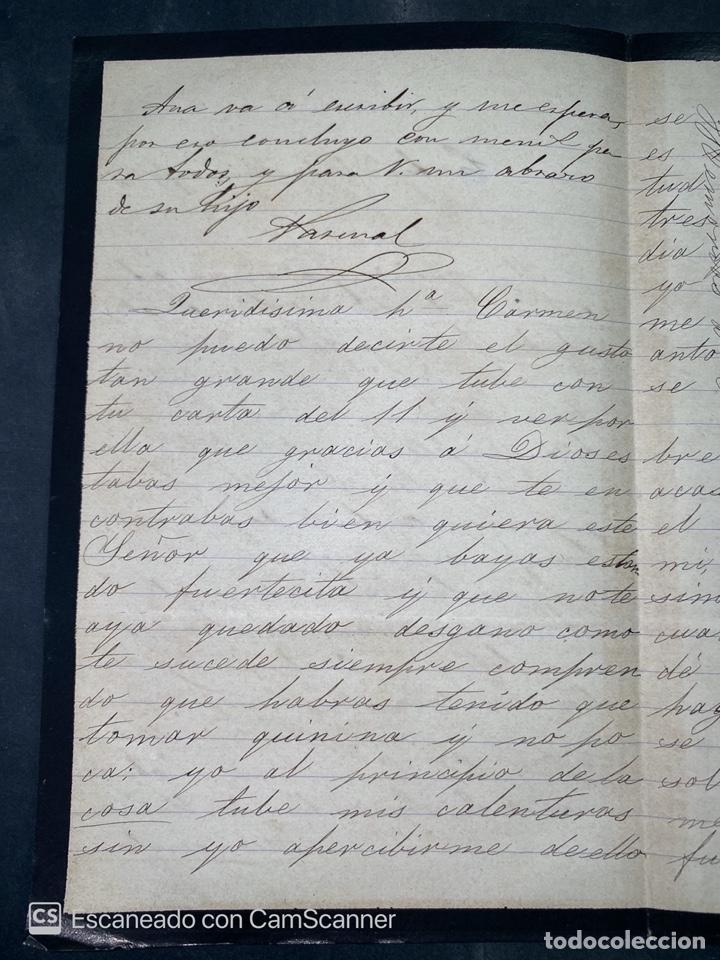 Ana va á escribir, y me espera,
por eso concluyo con mil pa
ra todos, y para V. un abrazo
de su hijo
Pascual
Queridisima hª Carmen
no puedo decirte el gusto
tan grande que tube con
tu carta del 11 y ver por
ella que gracias á Dios es
tabas mejor y que te en
contrabas bien quiera este
Señor que ya bayas estan
do fuertecita y que no te
aya quedado desgano como
te sucede siempre compren
do que habras tenido que
tomar quinina y no po
ca: yo al principio de la
cosa tube mis calenturas
sin yo apercibirme de ello
se
es
tud
tres
dia
yo
me
anto
se
bre
acas
el
mi,
sim
cua
dé
hay
se
sol
me
fu
CS Escaneado con CamScanner
todocoleccion